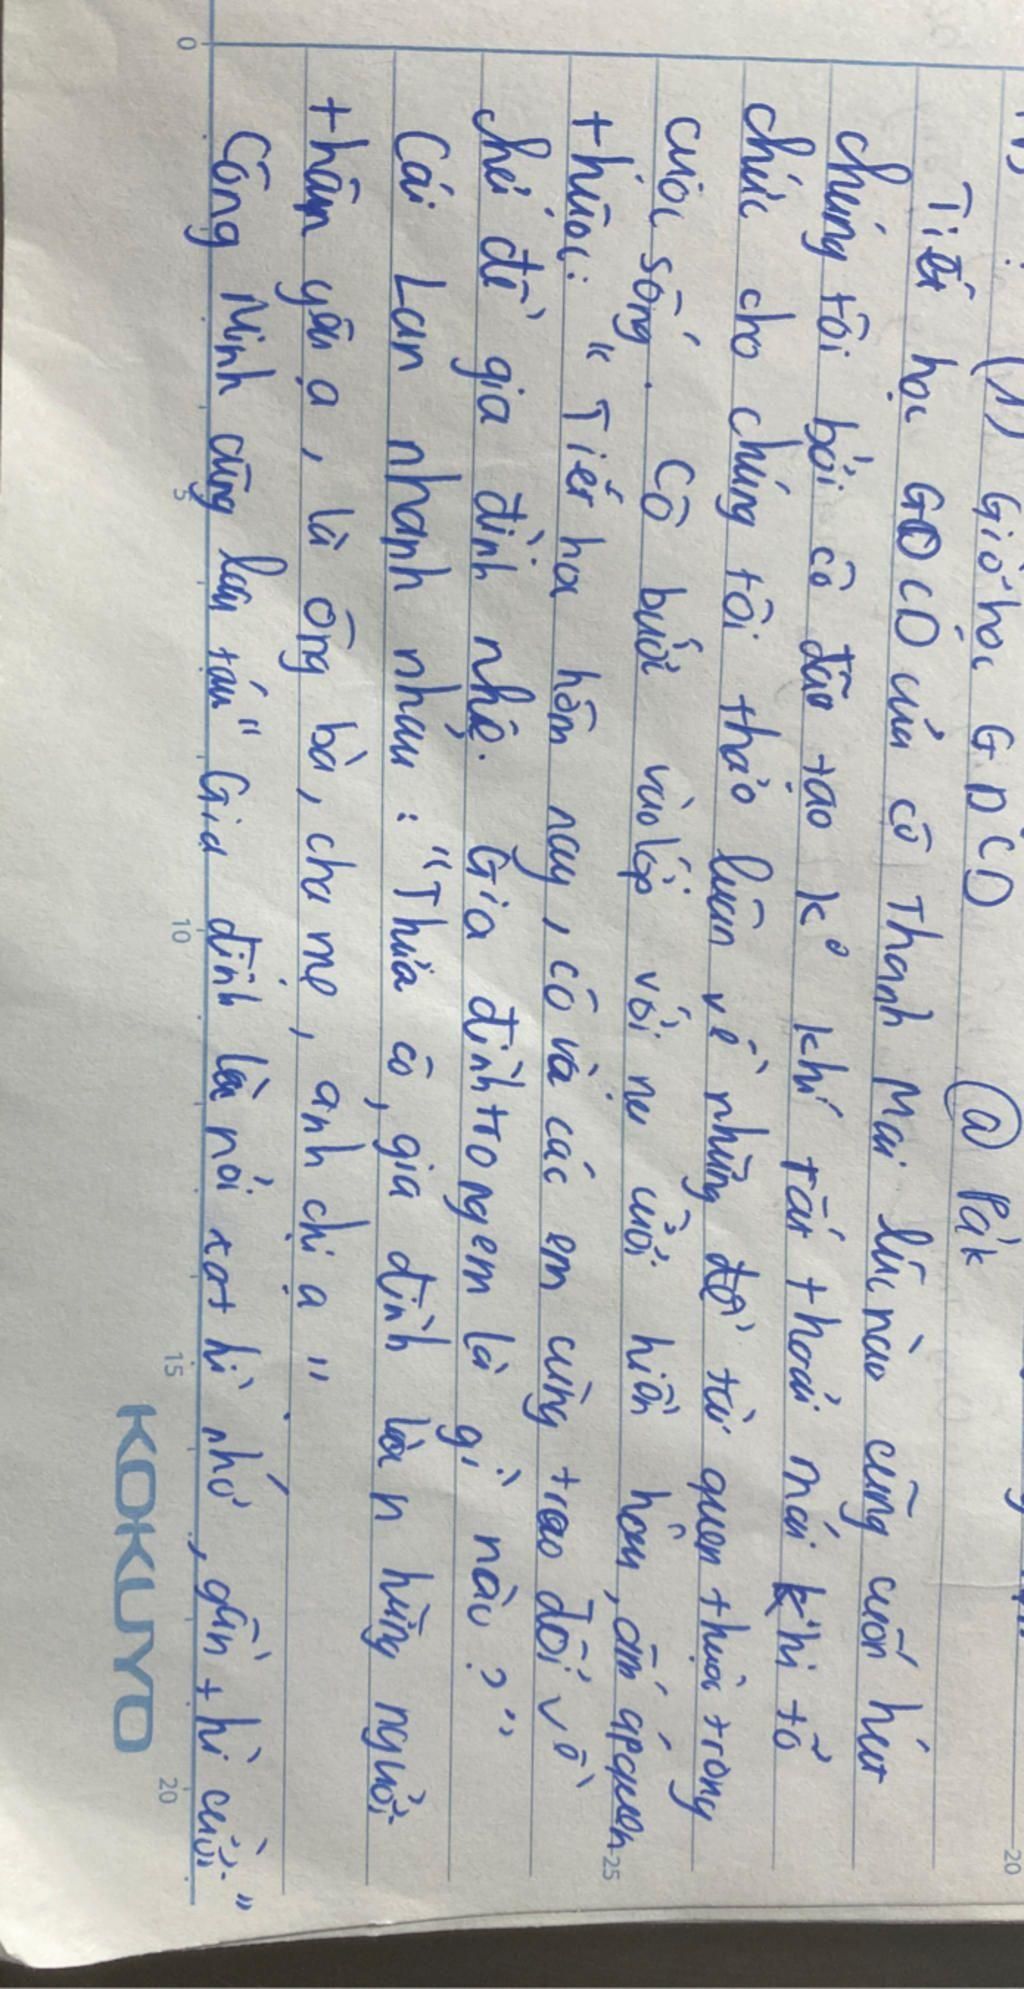 (1) Giờ học GDCD @ Pak
Tiết học GDCD của cô Thanh Mai lúc nào cũng cuốn hút
chúng tôi bởi cô đão tạo kº khí rất thoải mái khi tổ
chức cho chúng tôi thảo luân về những đề từ quen thuộc trong
cuộc sống. Cô bước vào lớp với nụ cười hiền hậu, ấm áp quen
thuộc: " Tiết học hôm nay, cô và các em cùng trao đổi về
chủ đề gia đình nhé. Gia đình trong em là gì nào? "
Cái Lan nhanh nhảu : "Thưa cô, gia đình là những người
thân yêu ạ, là ông bà, cha mẹ, anh chị ạ "
Công Minh cũng láu táu " Gia đình là nơi xa thì nhớ, gần thì cười. "
0
5
10
15
20
KOKUYO
20
25